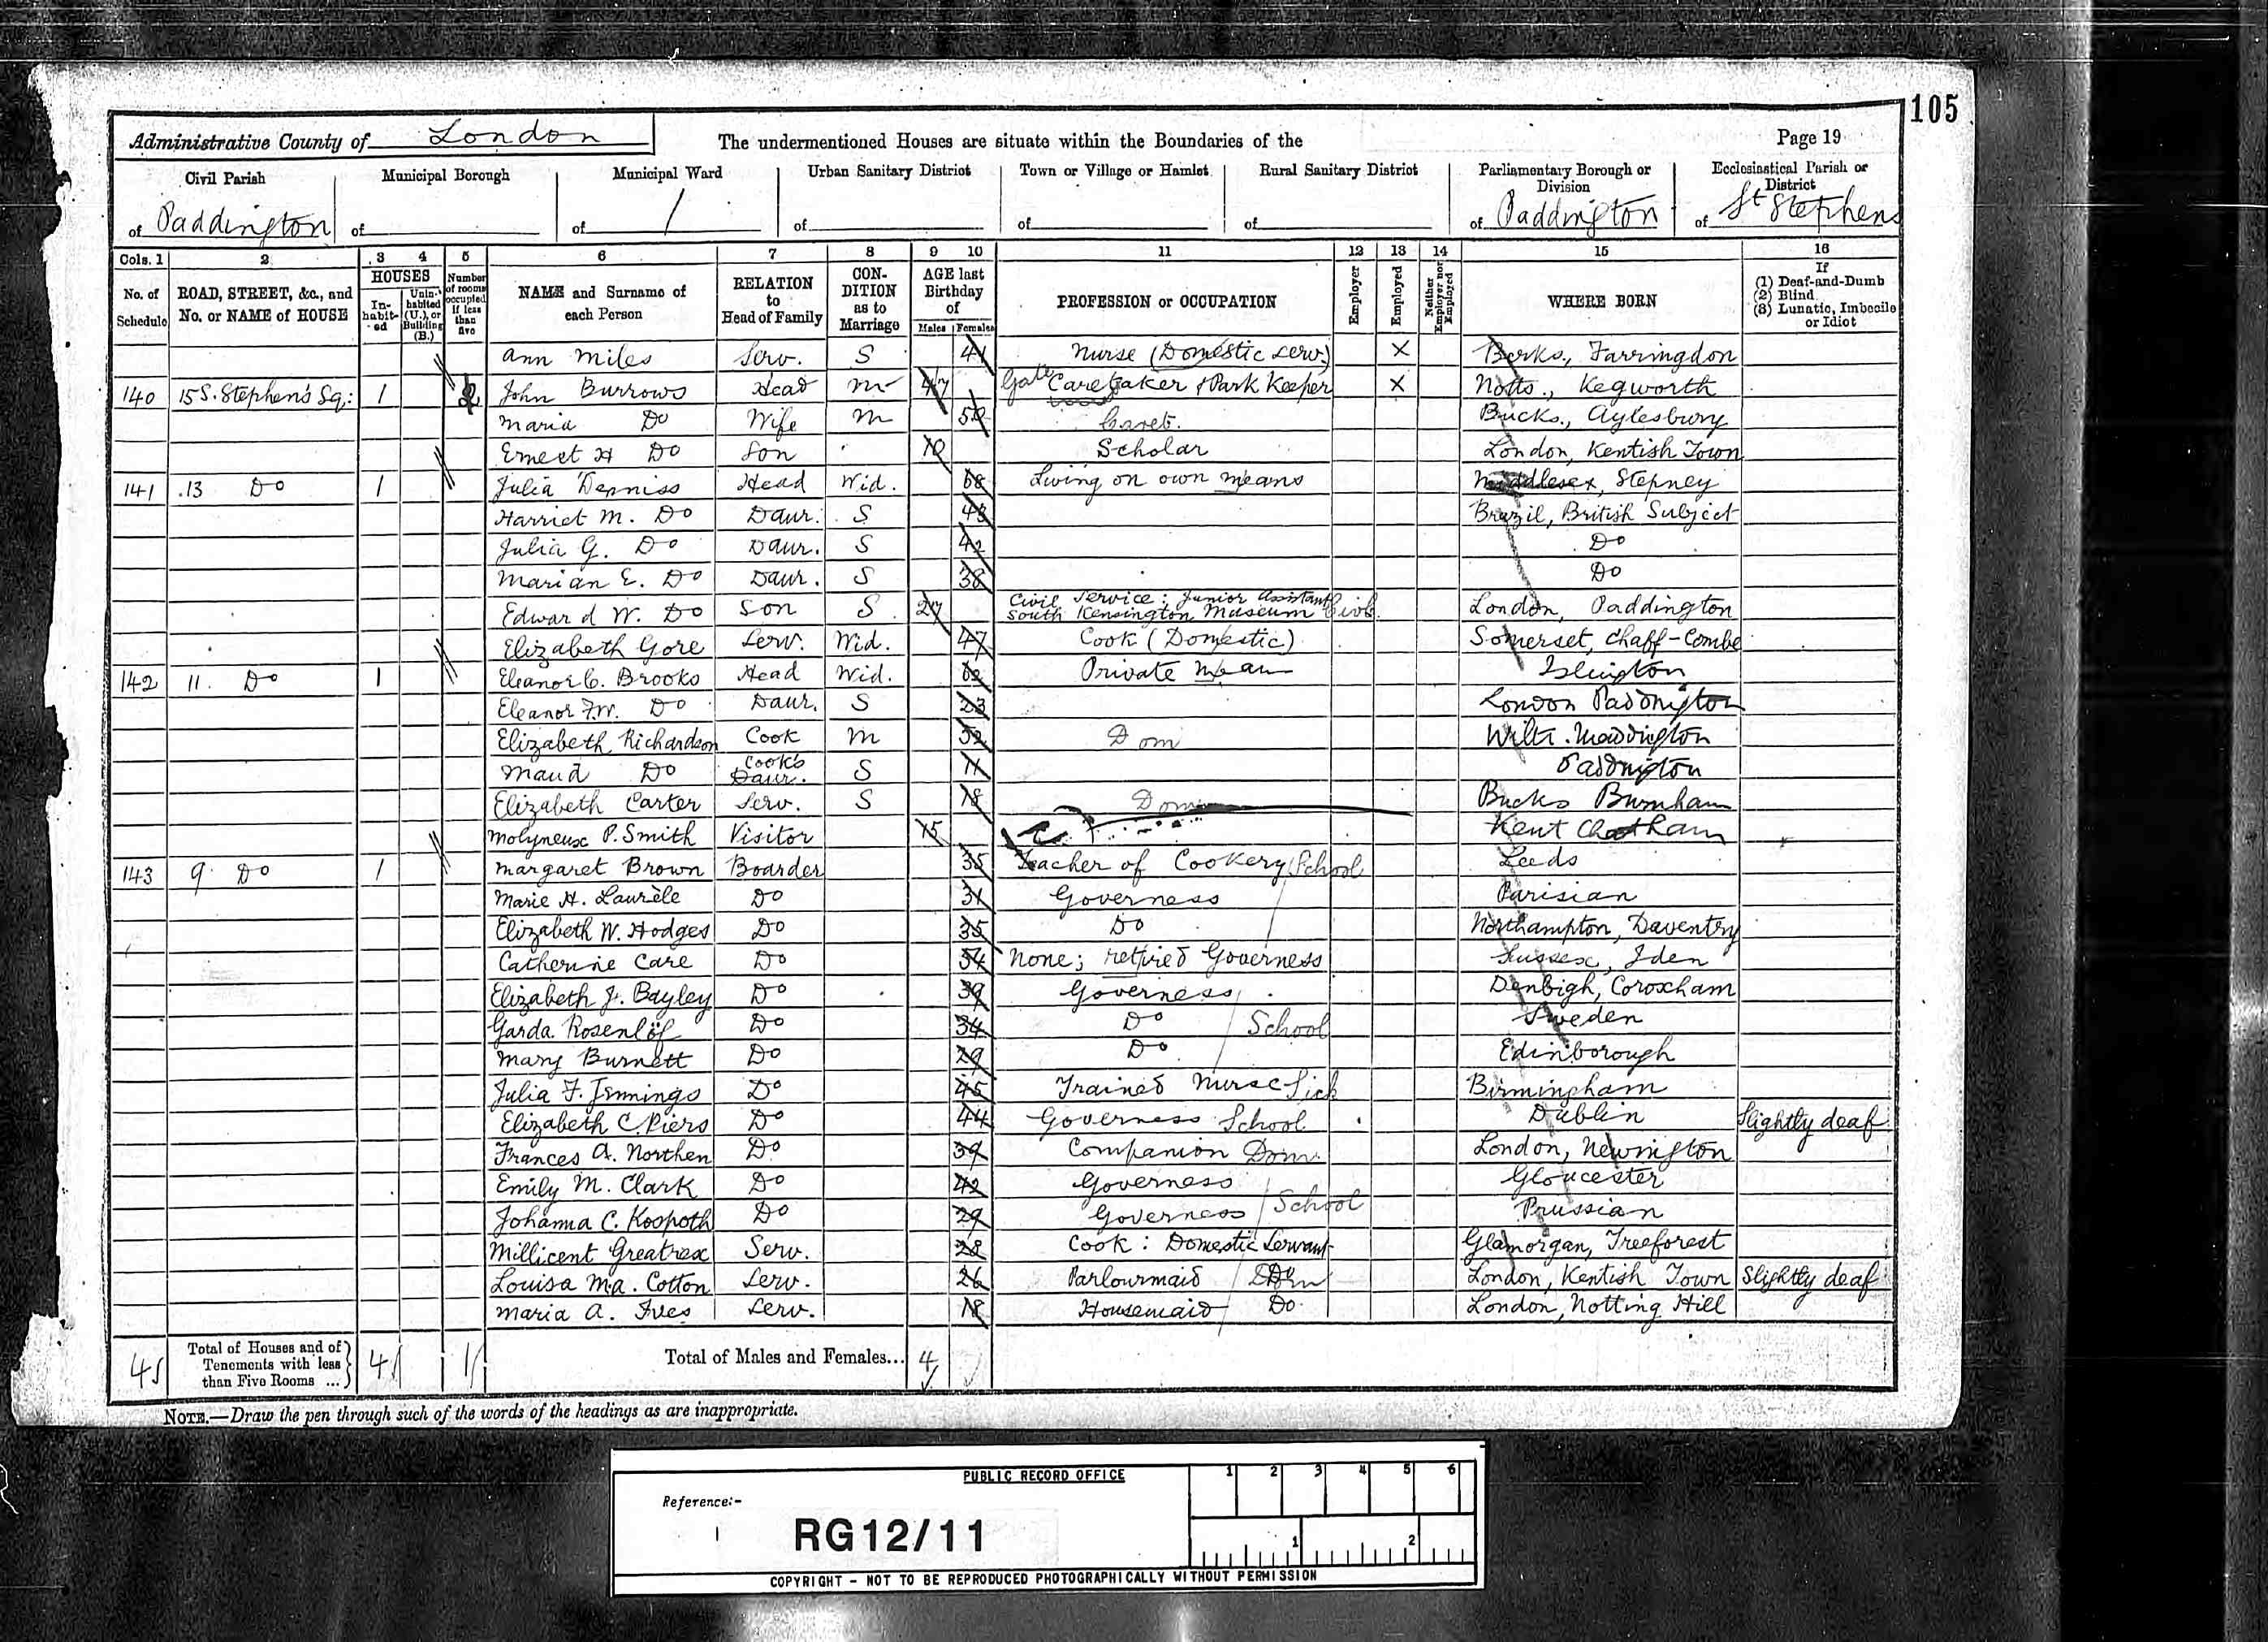 105
Administrative County of London
The undermentioned Houses are situate within the Boundaries of the
Page 19
Civil Parish of Paddington
Municipal Borough of
Municipal Ward of 1
Urban Sanitary District of
Town or Village or Hamlet of
Rural Sanitary District of
Parliamentary Borough or Division of Paddington
Ecclesiastical Parish or District of St Stephens
Cols. 1 2 3 4 5 6 7 8 9 10 11 12 13 14 15 16
No. of Schedule
ROAD, STREET, &c., and No. or NAME of HOUSE
HOUSES
In-habit-ed
Unin-habited (U.), or Building (B.)
Number of rooms occupied if less than five
NAME and Surname of each Person
RELATION to Head of Family
CON-DITION as to Marriage
AGE last Birthday of
Males Females
PROFESSION or OCCUPATION
Employer
Employed
Neither Employer nor Employed
WHERE BORN
If
(1) Deaf-and-Dumb
(2) Blind
(3) Lunatic, Imbecile or Idiot
Ann Miles Serv. S 41 Nurse (Domestic Serv.) X Berks., Farringdon
140 15 S. Stephen's Sq: 1 2 John Burrows Head M 47 Gate Caretaker & Park Keeper X Notts., Kegworth
Maria Do Wife M Caret. Bucks., Aylesbury
Ernest H Do Son 10 Scholar London, Kentish Town
141 13 Do 1 Julia Denniss Head Wid. 68 Living on own means Middlesex, Stepney
Harriet M. Do Daur. S 43 Brazil, British Subject
Julia G. Do Daur. S 42 Do
Marian E. Do Daur. S 38 Do
Edward W. Do Son S 27 Civil Service: Junior Assistant South Kensington Museum Civil London, Paddington
Elizabeth Gore Serv. Wid. 47 Cook (Domestic) Somerset, Chaff-Combe
142 11. Do 1 Eleanor C. Brooks Head Wid. 62 Private Mean Islington
Eleanor F.W. Do Daur. S 23 London Paddington
Elizabeth Richardson Cook M 52 Dom Wilts. Maddington
Maud Do Cook's Daur. S 11 Paddington
Elizabeth Carter Serv. S 18 Dom Bucks Burnham
Molyneux P. Smith Visitor 15 Kent Chatham
143 9 Do 1 Margaret Brown Boarder 35 Teacher of Cookery School Leeds
Marie H. Laurèle Do 31 Governess Parisian
Elizabeth W. Hodges Do 35 Do Northampton, Daventry
Catherine Care Do 54 None; retired Governess Sussex, Iden
Elizabeth J. Bayley Do 39 Governess Denbigh, Coroxham
Garda Rosenlöf Do 34 Do School Sweden
Mary Burnett Do 29 Do Edinborough
Julia F. Jennings Do 45 Trained Nurse Sick Birmingham
Elizabeth C. Piers Do 44 Governess School Dublin Slightly deaf
Frances A. Northen Do 39 Companion Dom. London, Newington
Emily M. Clark Do 42 Governess Gloucester
Johanna C. Kospoth Do 29 Governess School Prussian
Millicent Greatrex Serv. 28 Cook: Domestic Servant Glamorgan, Treeforest
Louisa Ma. Cotton Serv. 26 Parlourmaid Dom London, Kentish Town Slightly deaf
Maria A. Ives Serv. 18 Housemaid Do London, Notting Hill
4 Total of Houses and of Tenements with less than Five Rooms ... 4 1 Total of Males and Females... 4
NOTE.—Draw the pen through such of the words of the headings as are inappropriate.
PUBLIC RECORD OFFICE
1 2 3 4 5 6
Reference:-
RG12/11
1 2
COPYRIGHT - NOT TO BE REPRODUCED PHOTOGRAPHICALLY WITHOUT PERMISSION